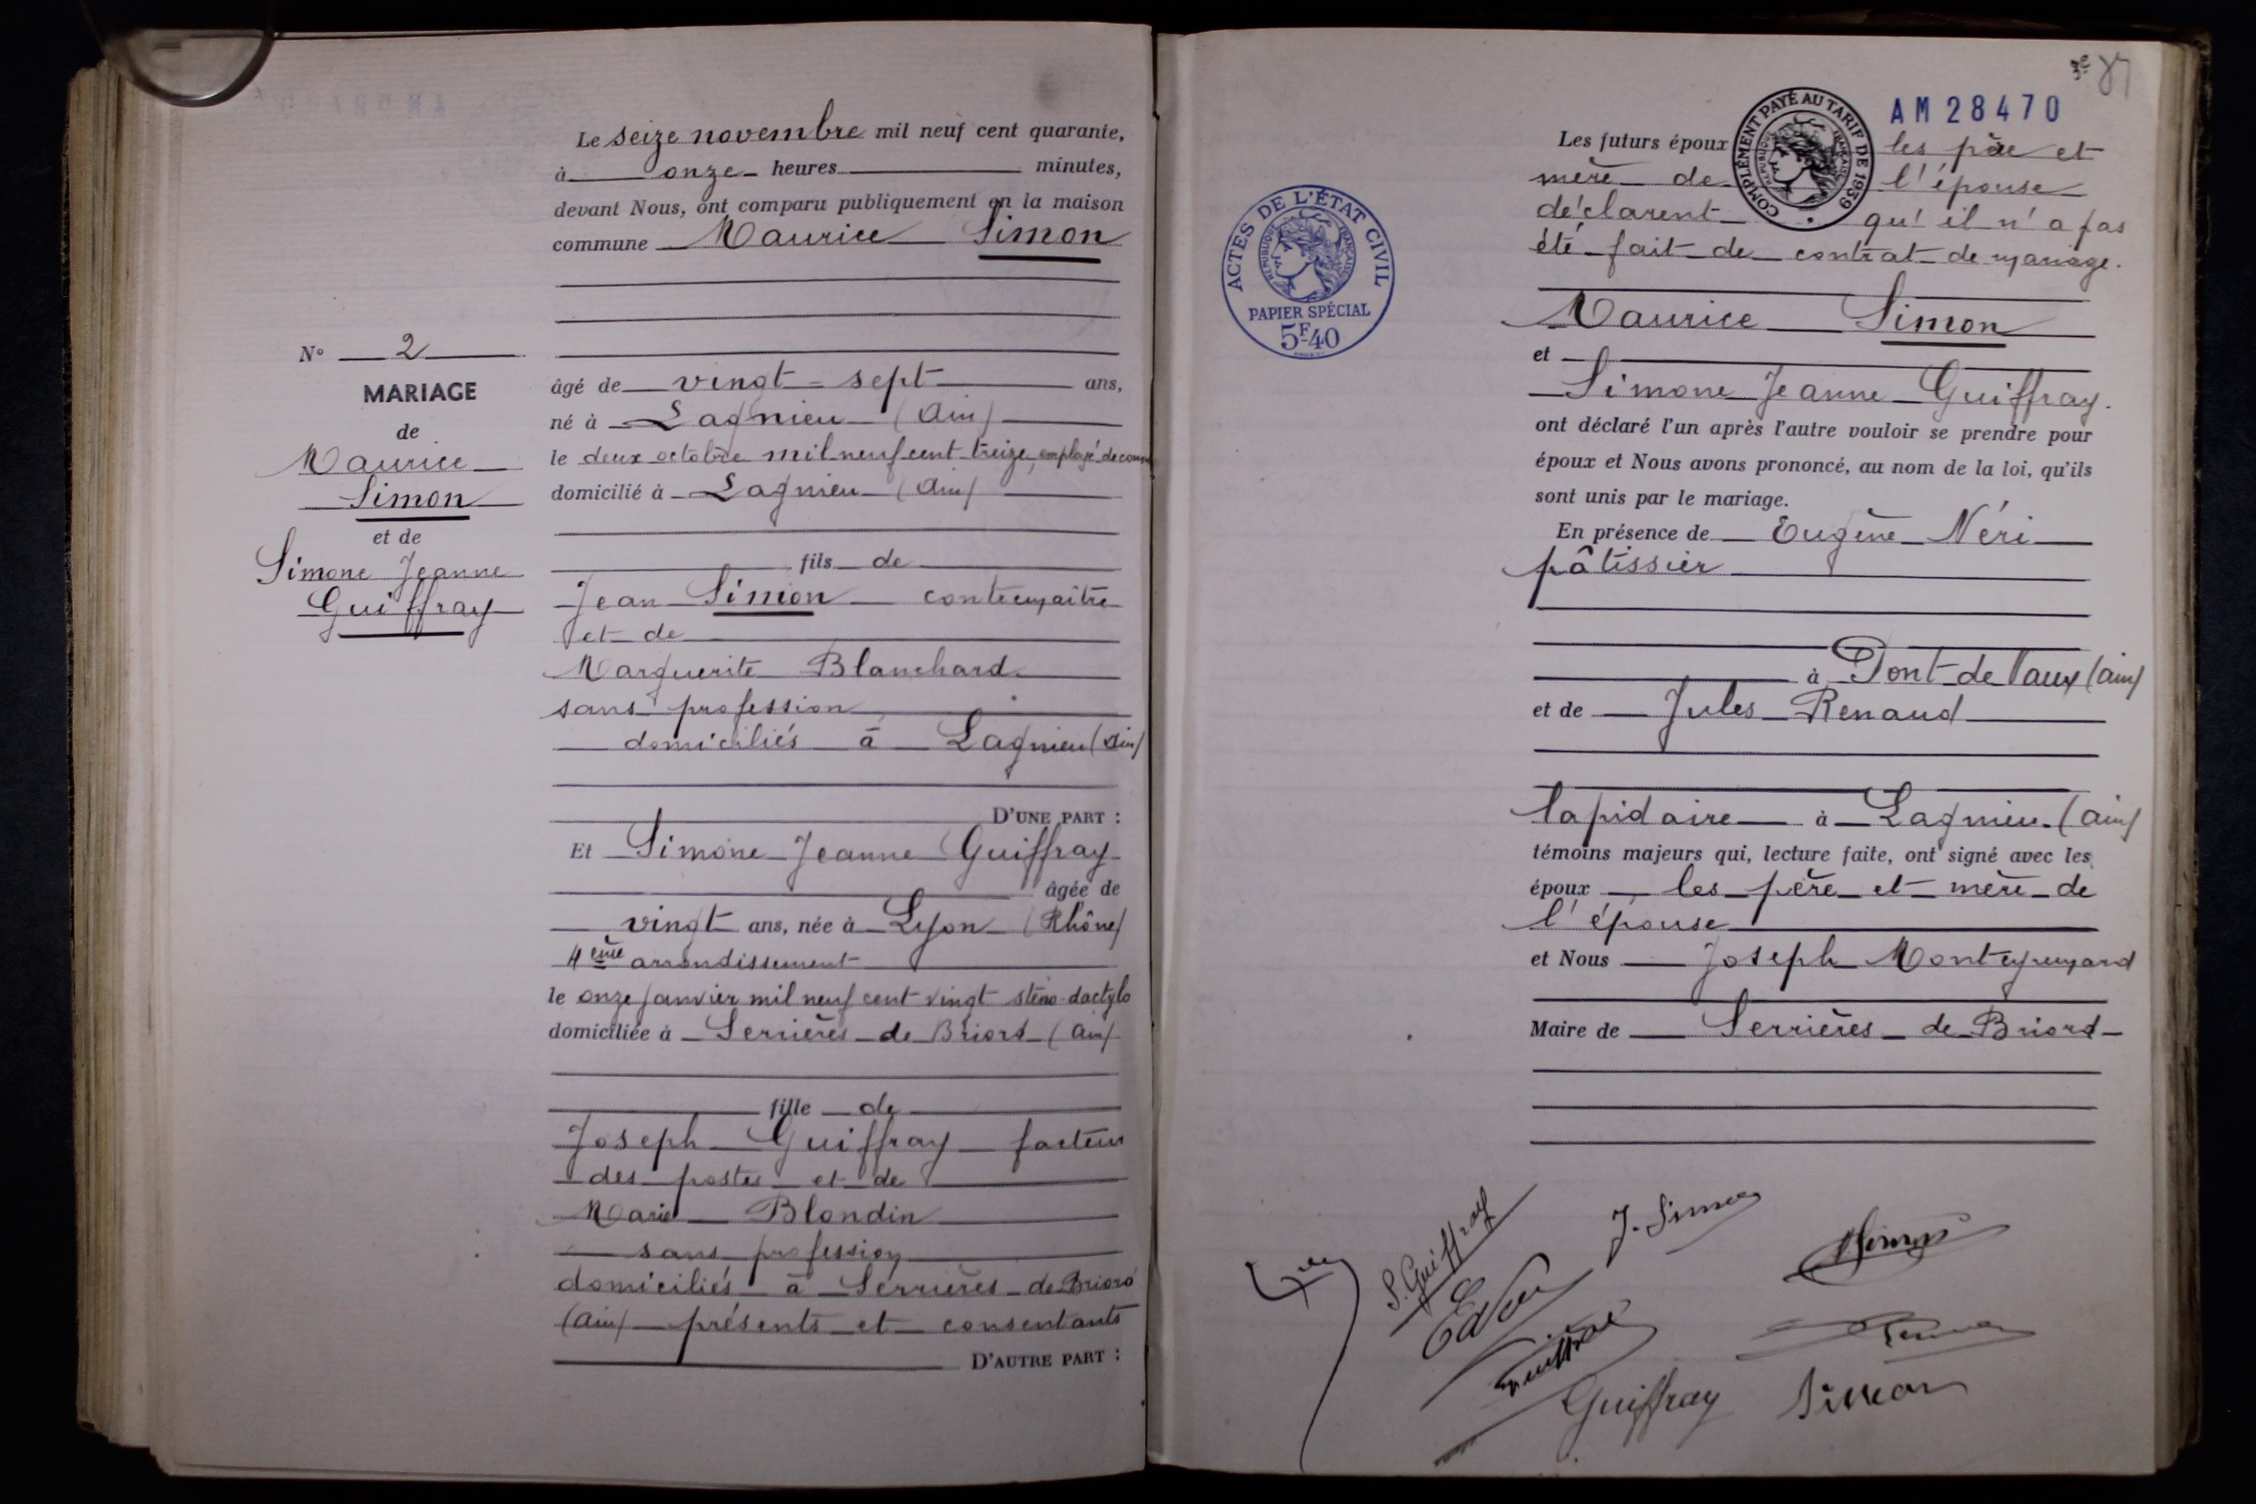 Le seize novembre mil neuf cent quarante,
à onze heures minutes,
devant Nous, ont comparu publiquement en la maison
commune Maurice Simon
N° 2
MARIAGE
de
Maurice
Simon
et de
Simone Jeanne
Guiffray
âgé de vingt-sept ans,
né à Lagnieu (Ain)
le deux octobre mil neuf cent treize, employé de comm
domicilié à Lagnieu (Ain)
fils de
Jean Simon contremaître
et de
Marguerite Blanchard
sans profession
domiciliés à Lagnieu (Ain)
D'UNE PART :
Et Simone Jeanne Guiffray
âgée de
vingt ans, née à Lyon (Rhône)
4ème arrondissement
le onze janvier mil neuf cent vingt sténo-dactylo
domiciliée à Serrières de Briord (Ain)
fille de
Joseph Guiffray facteur
des postes et de
Marie Blondin
sans profession
domiciliés à Serrières de Briord
(Ain) présents et consentants
D'AUTRE PART :
AM 28470
COMPLÉMENT PAYÉ AU TARIF DE 1939
RÉPUBLIQUE FRANÇAISE
ACTES DE L'ÉTAT CIVIL
RÉPUBLIQUE FRANÇAISE
PAPIER SPÉCIAL
5F40
Les futurs époux les père et
mère de l'épouse
déclarent qu'il n'a pas
été fait de contrat de mariage.
Maurice Simon
et
Simone Jeanne Guiffray.
ont déclaré l'un après l'autre vouloir se prendre pour
époux et Nous avons prononcé, au nom de la loi, qu'ils
sont unis par le mariage.
En présence de Eugène Néri
pâtissier
à Pont-de-Vaux (Ain)
et de Jules Renaud
lapidaire à Lagnieu (Ain)
témoins majeurs qui, lecture faite, ont signé avec les
époux les père et mère de
l'épouse
et Nous Joseph
Maire de Serrières de Briord
S. Guiffray
J. Simon
Guiffray
Simon